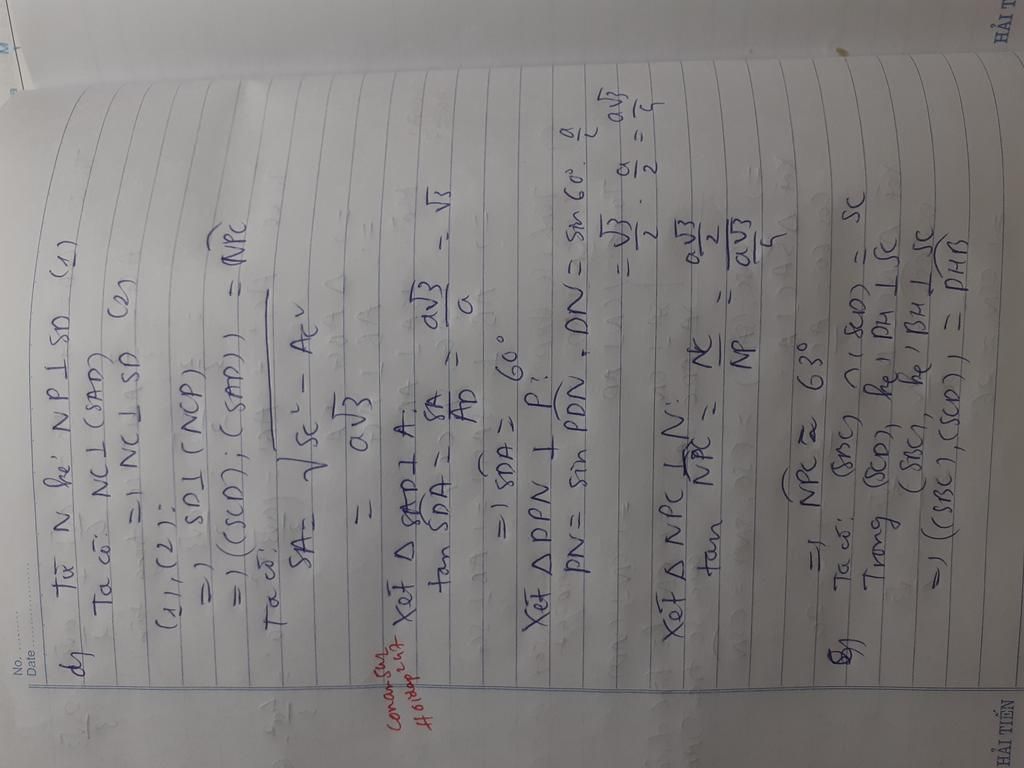 No.
Date
d, Từ N kẻ NP ⊥ SD (1)
Ta có: NC ⊥ (SAD)
=) NC ⊥ SD (2)
(1), (2):
=) SD ⊥ (NCP)
=) ((SCD); (SAD)) = NPC
Ta có:
SA = √SC² - AC²
= a√3
Xét Δ SAD ⊥ A:
tan SDA = SA/AD = a√3/a = √3
=) SDA = 60°
Xét Δ DPN ⊥ P:
PN = sin PDN . DN = sin 60° . a/2
= √3/2 . a/2 = a√3/4
Xét Δ NPC ⊥ N:
tan NPC = NC/NP = (a√3/2)/(a√3/4)
=) NPC ≈ 63°
Ta có: (SBC) ∩ (SCD) = SC
Trong (SCD), kẻ DH ⊥ SC
(SBC), kẻ BH ⊥ SC
=) ((SBC), (SCD)) = DHB
Hoidap247
HẢI TIẾN
HẢI T